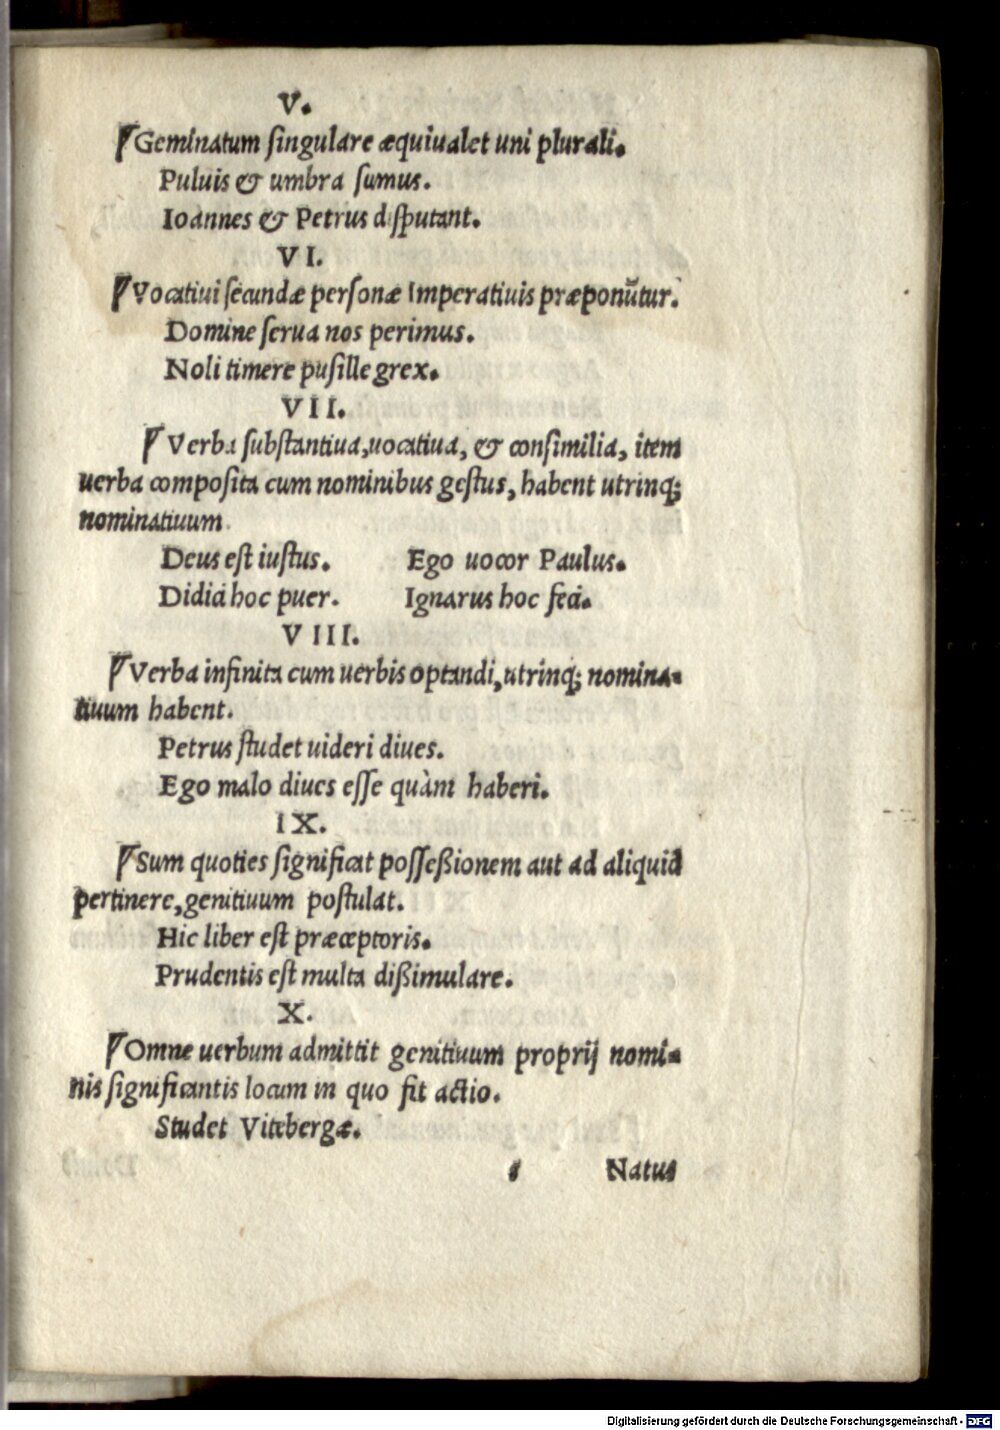 V.
¶ Geminatum singulare æquiualet uni plurali.
Puluis & umbra sumus.
Ioannes & Petrus disputant.
VI.
¶ Vocatiui secundæ personæ Imperatiuis præponũtur.
Domine serua nos perimus.
Noli timere pusille grex.
VII.
¶ Verba substantiua, uocatiua, & consimilia, item
uerba composita cum nominibus gestus, habent utrinq;
nominatiuum.
Deus est iustus. Ego uocor Paulus.
Didici hoc puer. Ignarus hoc feci.
VIII.
¶ Verba infinita cum uerbis optandi, utrinq; nomina-
tiuum habent.
Petrus studet uideri diues.
Ego malo diues esse quàm haberi.
IX.
¶ Sum quoties significat posseßionem aut ad aliquid
pertinere, genitiuum postulat.
Hic liber est præceptoris.
Prudentis est multa dißimulare.
X.
¶ Omne uerbum admittit genitiuum proprij nomi-
nis significantis locum in quo fit actio.
Studet Vitebergæ.
Natus
Digitalisierung gefördert durch die Deutsche Forschungsgemeinschaft - DFG